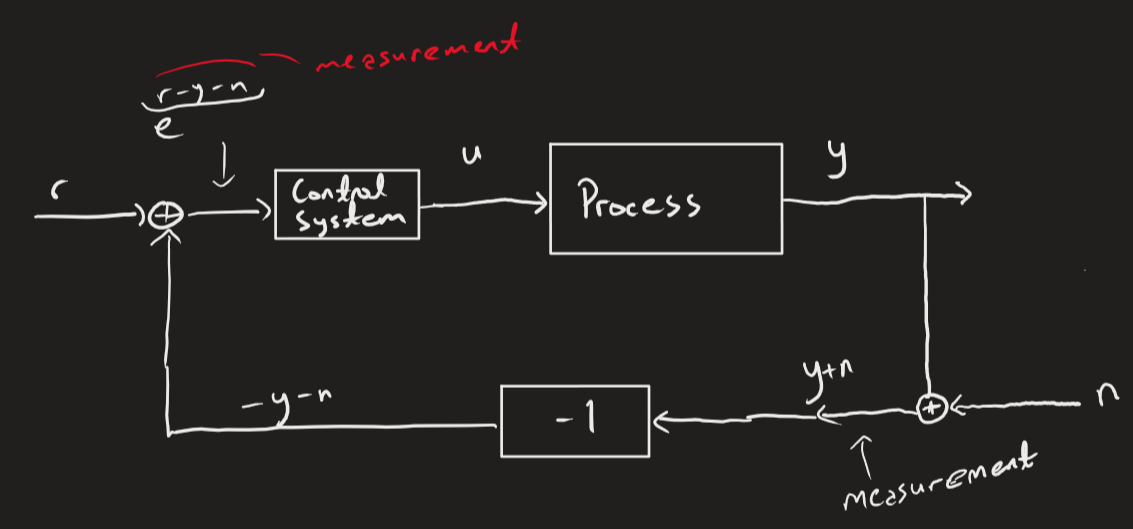 measurement
r-y-n
e
r
Control
system
u
Process
y
-y-n
-1
y+n
n
measurement